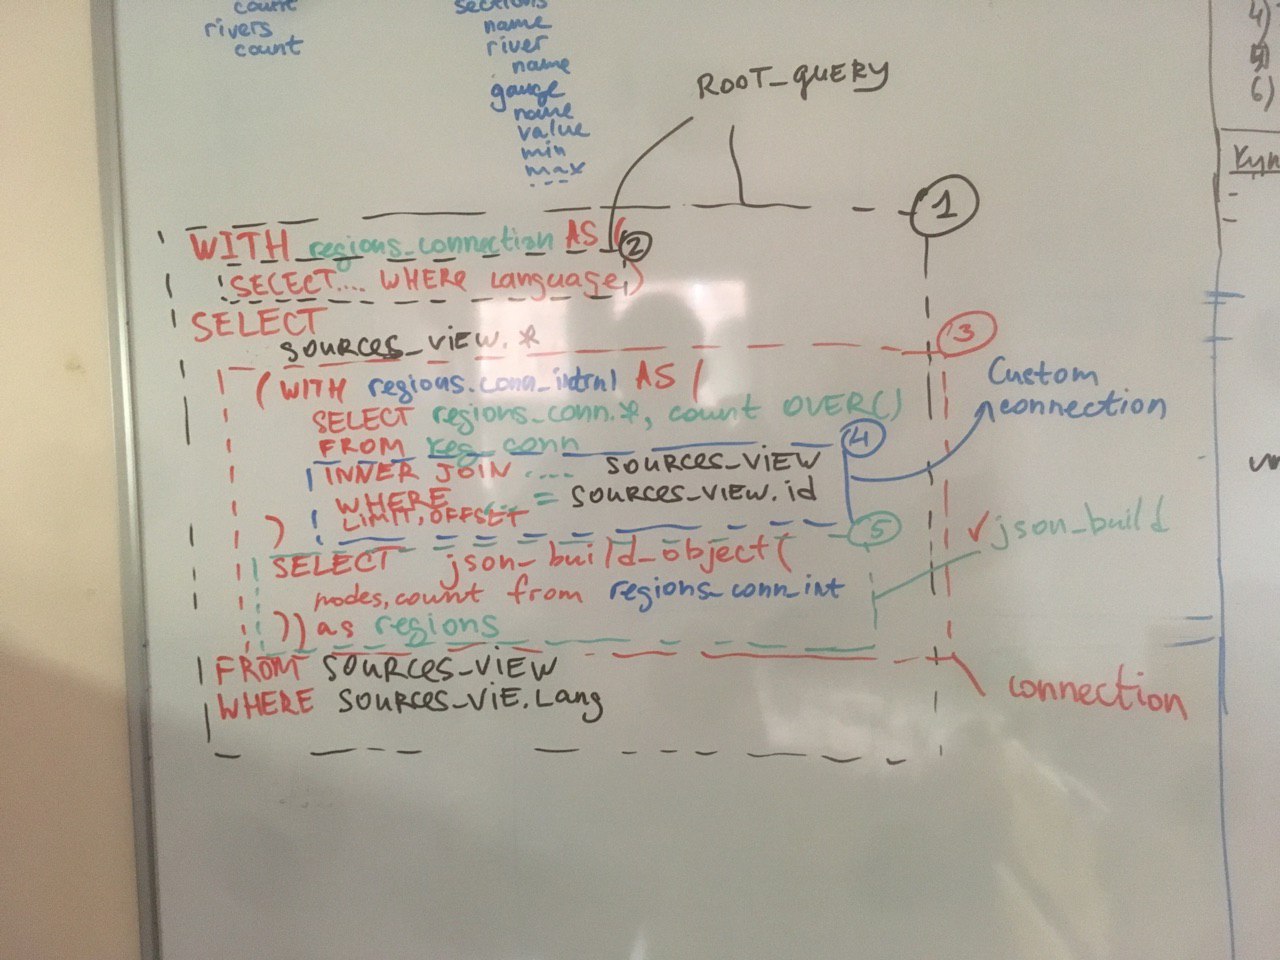 count
rivers
count
sections
name
river
name
gauge
name
value
min
max
ROOT_QUERY
1
WITH regions_connection AS (
2
SELECT.... WHERE language)
SELECT
sources_view.*
3
(WITH regions.conn_intrnl AS (
SELECT regions_conn.*, count OVER()
FROM reg_conn
4
INNER JOIN .... SOURCES_VIEW
WHERE ... = SOURCES_VIEW.id
LIMIT, OFFSET
)
5
SELECT json_build_object(
nodes, count from regions_conn_int
)) as regions
FROM SOURCES_VIEW
WHERE SOURCES_VIE.Lang
Custom
connection
json_build
connection
4)
6)